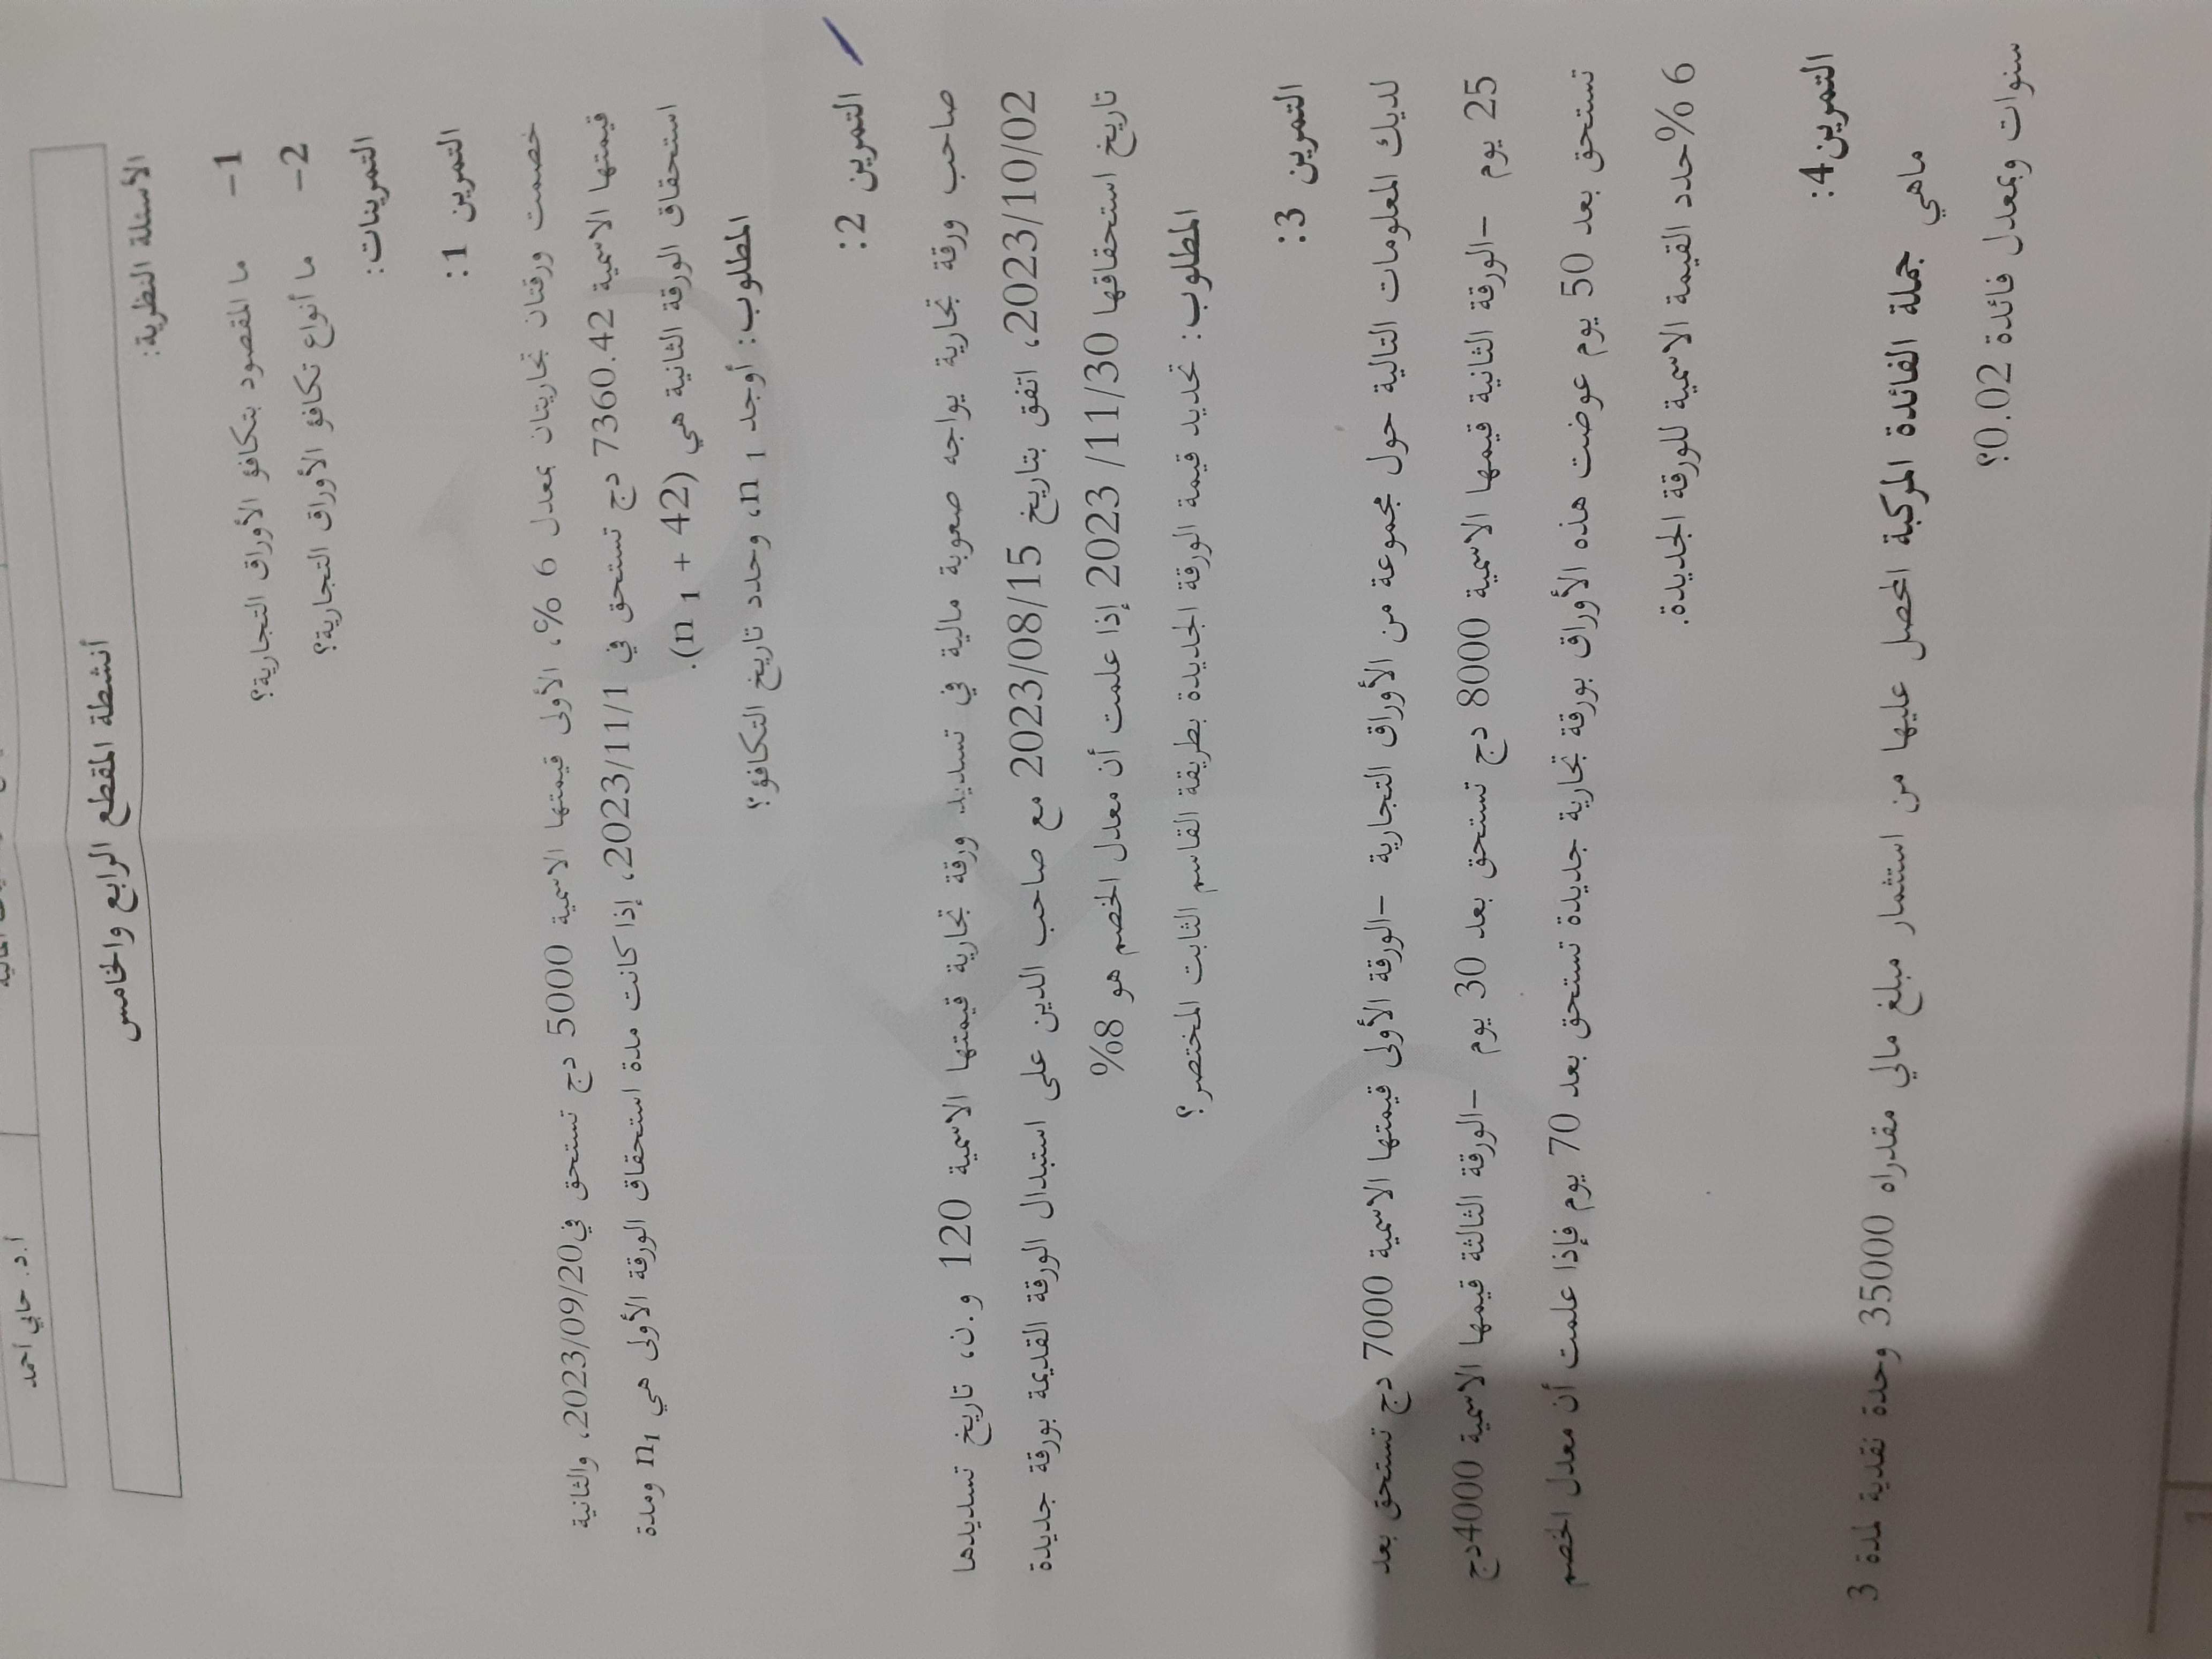 أ.د. حابي أحمد
أنشطة المقطع الرابع والخامس
الأسئلة النظرية:
1- ما المقصود بتكافؤ الأوراق التجارية؟
2- ما أنواع تكافؤ الأوراق التجارية؟
التمرينات:
التمرين 1:
خصمت ورقتان تجاريتان بمعدل 6 %، الأولى قيمتها الاسمية 5000 دج تستحق في2023/09/20، والثانية
قيمتها الاسمية 7360.42 دج تستحق في 2023/11/1، إذا كانت مدة استحقاق الورقة الأولى هي n₁ ومدة
استحقاق الورقة الثانية هي (n ₁ + 42).
المطلوب: أوجد n ₁، وحدد تاريخ التكافؤ؟
التمرين 2:
صاحب ورقة تجارية يواجه صعوبة مالية في تسديد ورقة تجارية قيمتها الاسمية 120 و.ن، تاريخ تسديدها
2023/10/02، اتفق بتاريخ 2023/08/15 مع صاحب الدين على استبدال الورقة القديمة بورقة جديدة
تاريخ استحقاقها 11/30/ 2023 إذا علمت أن معدل الخصم هو 8%
المطلوب: تحديد قيمة الورقة الجديدة بطريقة القاسم الثابت المختصر؟
التمرين 3:
لديك المعلومات التالية حول مجموعة من الأوراق التجارية -الورقة الأولى قيمتها الاسمية 7000 دج تستحق بعد
25 يوم -الورقة الثانية قيمها الاسمية 8000 دج تستحق بعد 30 يوم -الورقة الثالثة قيمها الاسمية 4000دج
تستحق بعد 50 يوم عوضت هذه الأوراق بورقة تجارية جديدة تستحق بعد 70 يوم فإذا علمت أن معدل الخصم
6 %حدد القيمة الاسمية للورقة الجديدة.
التمرين4:
ماهي جملة الفائدة المركبة المحصل عليها من استثمار مبلغ مالي مقدراه 35000 وحدة نقدية لمدة 3
سنوات وبمعدل فائدة 0.02؟